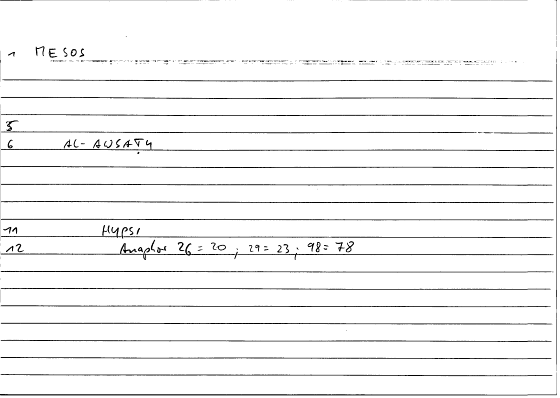 1 MESOS
5
6 AL-AUSAṬ4
11 HYPSI
12 Anaphor 26 = 20 ; 29 = 23 ; 98 = 78